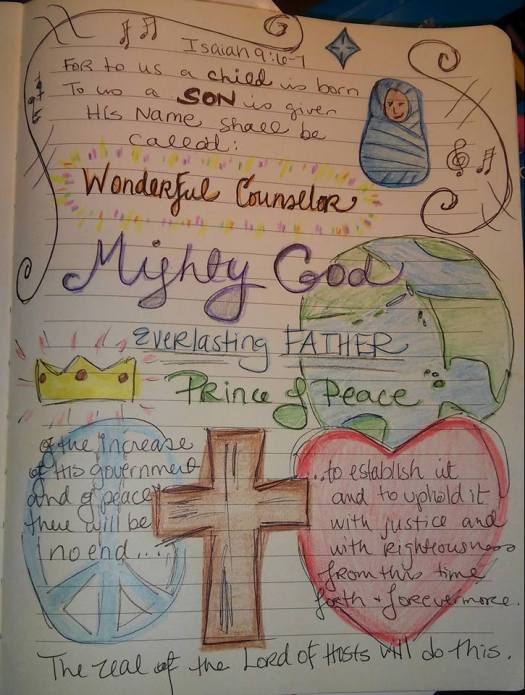 Isaiah 9:6-7
For to us a child is born
To us a SON is given
His Name shall be
called:
Wonderful Counselor
Mighty God
Everlasting FATHER
Prince of Peace
of the increase
of His government
and of peace
there will be
no end....
...to establish it
and to uphold it
with justice and
with righteousness
from this time
forth + forevermore.
The zeal of the Lord of Hosts will do this.